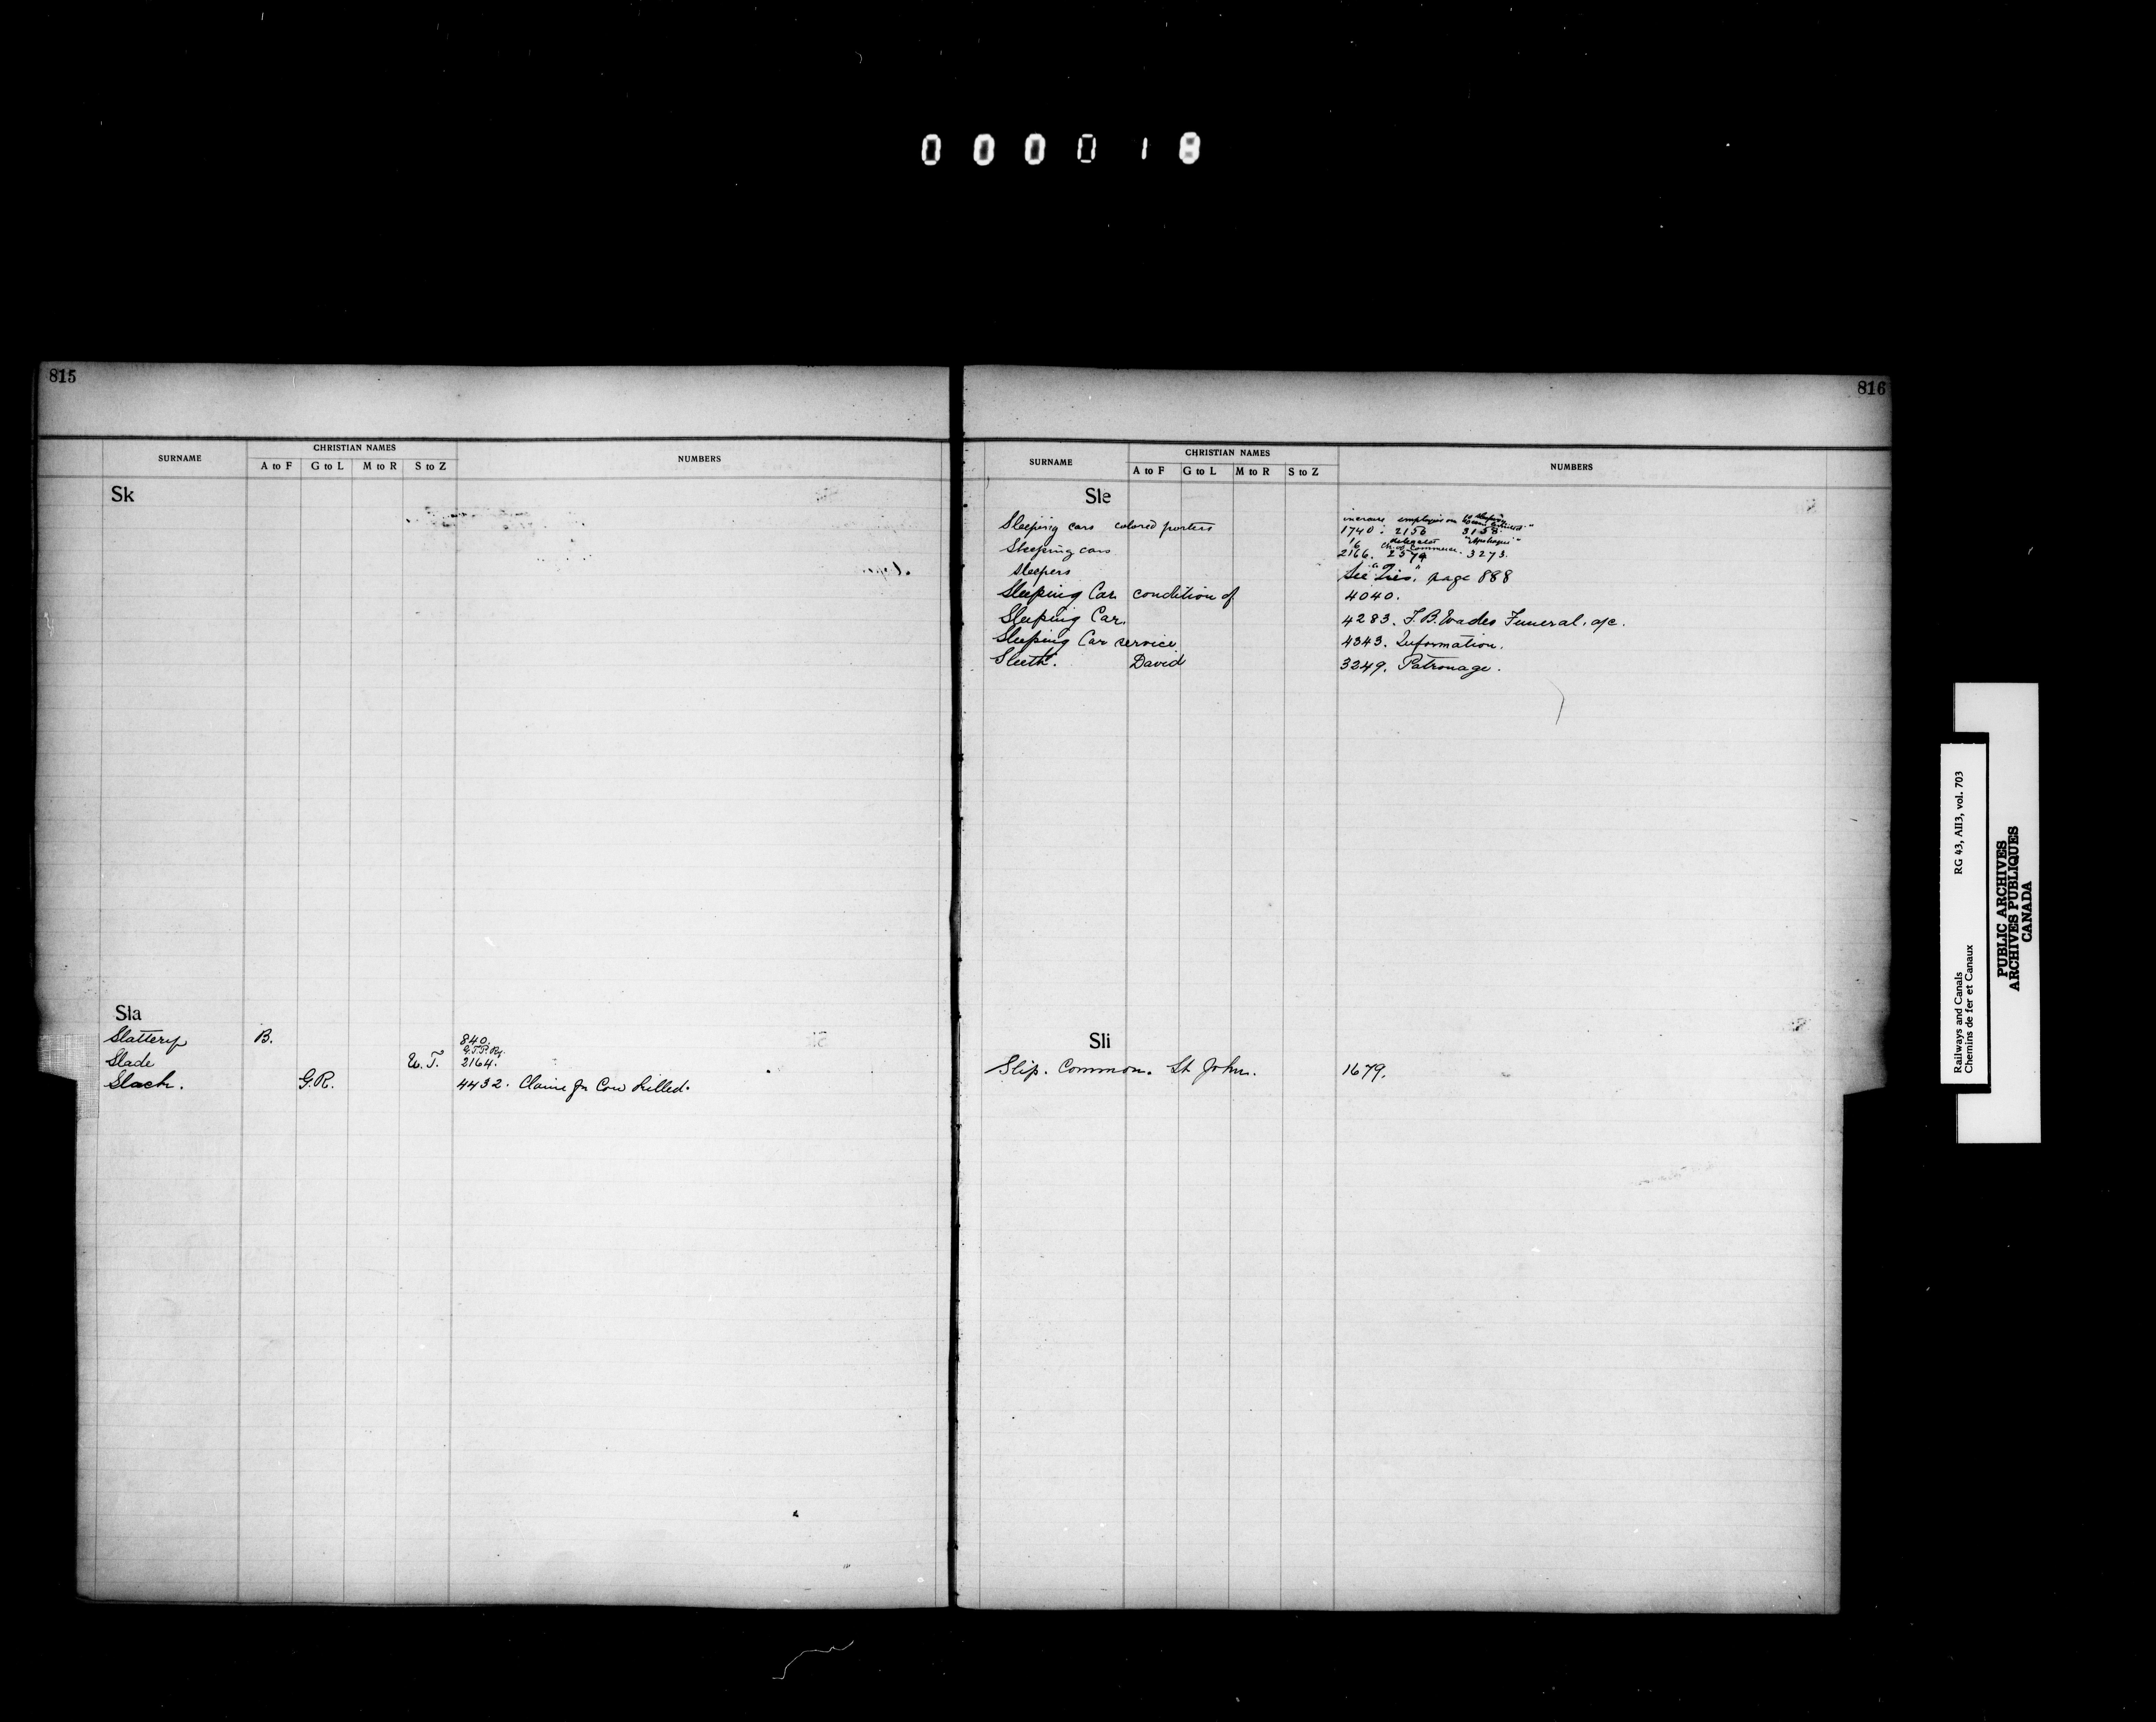 000018
815
SURNAME CHRISTIAN NAMES NUMBERS
A to F G to L M to R S to Z
Sk
Sla
Slattery B. 840.
G.T.P.Ry.
Slade W. T. 2164.
Slack. G.R. 4432. Claim for Cow killed.
816
SURNAME CHRISTIAN NAMES NUMBERS
A to F G to L M to R S to Z
Sle
increase employees on
Sleeping cars colored porters 1740. 2156 3158
16 "Apohaqui"
Sleeping cars Ch. of Commerce.
2166. 2574 3273.
Sleepers See "Ties," page 888
Sleeping Car condition of 4040.
Sleeping Car. 4283. F.B. Wades Funeral. a/c.
Sleeping Car service 4343. Information.
Sleeth. David 3249. Patronage.
Sli
Slip. Common. St John. 1679.
Railways and Canals RG 43, AII3, vol. 703
Chemins de fer et Canaux
PUBLIC ARCHIVES
ARCHIVES PUBLIQUES
CANADA